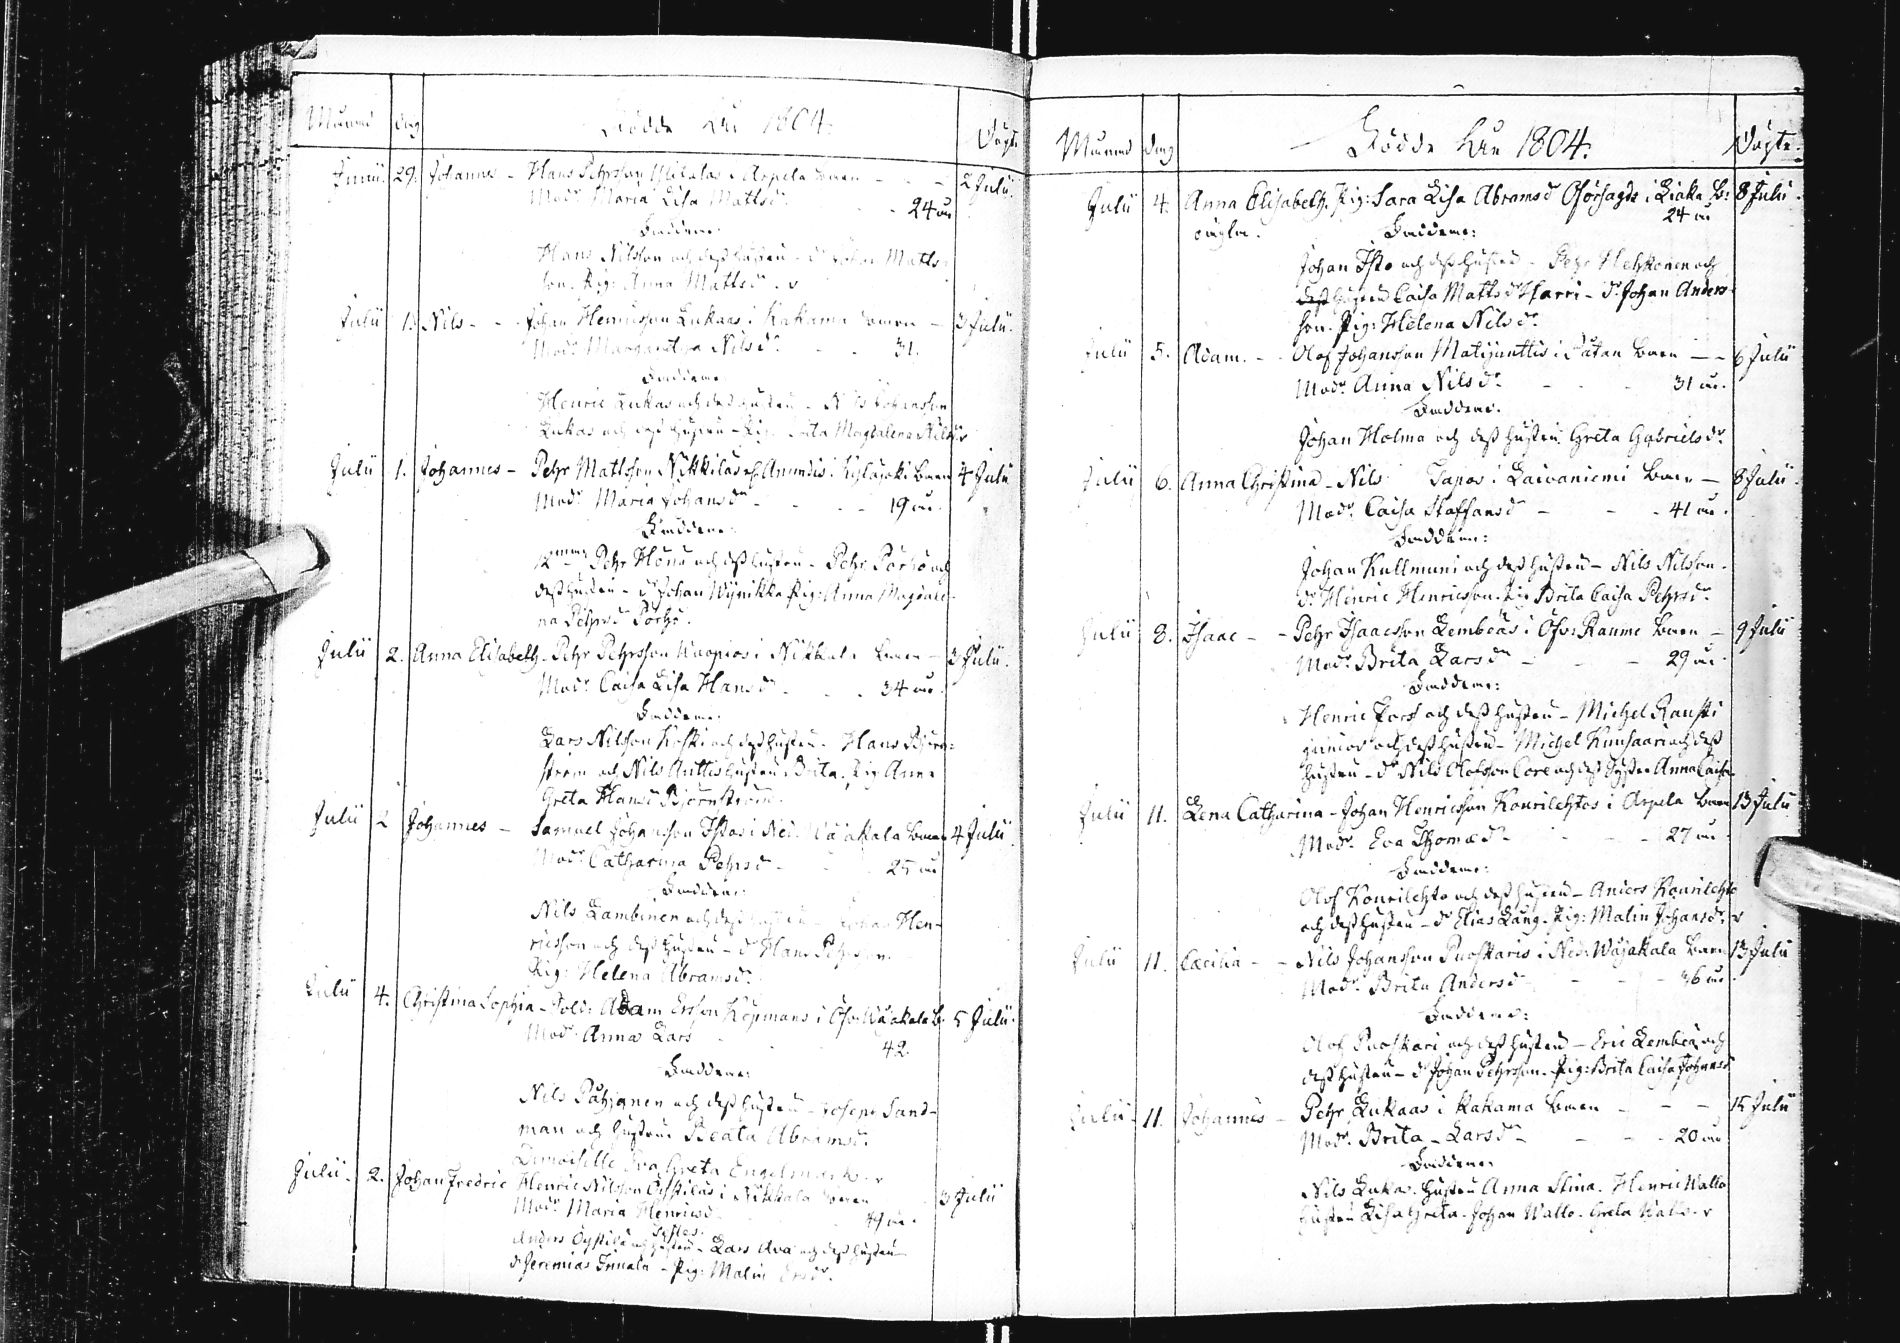 Månad dag Födde Åhr 1804. Döpte
Junii 29. Johannes - Hans Pehrsson Mikalas i Arpela Barn - - 2 Julii.
Modr Maria Lisa Mattsdr - - 24 år
Faddrar:
Hans Nilsson och dess hustru - dr Johan Matts-
son. Pig: Anna Mattsdr
Julii 1. Nils - - Johan Henricsson Lukaas i Kakama Barn - 3 Julii.
Modr Margaretha Nilsdr - - 31.
Faddrar
Henric Lukas och dess hustru - Nils Johansson
Lukas och dess hustru - Pig. Brita Magdalena Nilsdr
Julii 1. Johannes - Pehr Mattsson Nikkilas Anundis i Kyläjoki Barn 4 Julii
Modr Maria Johansdr - - 19 år.
Faddrar:
Pehr och dess hustru - Pehr Pörhö och
dess hustru - dr Johan Wijnikka Pig: Anna Magdale-
na Pehrsdr Pörhö.
Julii 2. Anna Elisabeth - Pehr Pehrsson i Nikkala Barn - 3 Julii.
Modr Caisa Lisa Hansdr - - 34 år.
Faddrar:
Lars Nilsson Koski och dess hustru - Hans Björn-
ström och Nils Anttis hustru Brita. Pig Anna
Greta Hansdr Björnström.
Julii 2 Johannes - Samuel Johansson Istos i Ned. Wäjakala Barn 4 Julii.
Modr Catharina Pehrsdr - - 25 år
Faddrar:
Nils Lambinen och dess hustru - Johan Hen-
ricsson och dess hustru - dr Hans Pehrsson.
Pig: Helena Abramsdr.
Julii 4. Christina Sophia - Sold: Adam Ersson Köpmans i Öfv. Wäjakala B. 5 Julii.
Modr Anna Lars 42.
Faddrar:
Nils Päthjanen och dess hustru - Joseph Sand-
man och hustru Beata Abramsdr.
Demoiselle Eva Greta Engelmark.
Julii. 2. Johan Fredric Henric Nilsson i Nikkala Barn 3 Julii
Modr Maria Henricsdr 49 år.
Testes.
Anders och hustru - Lars Ava och dess hustru
dr Jeremias - Pig: Malin Ersdr.
Månad dag Födde Åhr 1804. Döpte.
Julii 4. Anna Elisabeth. Pig: Sara Lisa Abramsdr Oförsagda i Liaka B: 8 Julii.
oägta. 24 år
Faddrar:
Johan Isto och dess hustru - Pehr och
dess hustru Caisa Mattsdr Harri - dr Johan Anders-
son. Pig: Helena Nilsdr
Julii 5. Adam. - - Olof Johansson Matijunttis i Säfan Barn - - 6 Julii
Modr Anna Nilsdr - - 31 år.
Faddrar.
Johan Holma och dess hustru. Greta Gabrielsdr
Julii 6. Anna Christina - Nils Tapos i Laivaniemi Barn - 8 Julii.
Modr Caisa Staffansdr - - 41 år.
Faddrar:
Johan Kullmuni och dess hustru - Nils Nilsson.
dr Hinric Henricsson. Pig Brita Caisa Pehrsdr
Julii 8. Isaac - - Pehr Isaacsson Lembeäs i Öfv: Raumo Barn - 9 Julii
Modr Brita Larsdr - - 29 år.
Faddrar:
Henric Fors och dess hustru - Michel Rauski
junior och dess hustru - Michel Kunsaari och dess
hustru - dr Nils Olofsson Core och dess syster Anna Caisa
Julii 11. Lena Catharina - Johan Henricsson Kourilehtos i Arpela Barn 13 Julii
Modr. Eva Thomædr - - 27 år.
Faddrar:
Olof Kourilehto och dess hustru - Anders Kourilehto
och dess hustru - dr Elias Lång. Pig: Malin Johansdr
Julii 11. Cæcilia - - Nils Johansson Puoskaris i Ned: Wäjakala Barn 13 Julii
Modr. Brita Andersdr - - 36 år.
Faddrar:
Olof Puoskari och dess hustru - Eric Lembeä och
dess hustru - dr Johan Pehrsson. Pig: Brita Caisa Johansdr
Julii 11. Johannes - Pehr Lukaas i Kakama Barn - - 15 Julii
Modr. Brita - Larsdr - - 20 år
Faddrar.
Nils Lukas. hustru Anna Stina. Henric Wallo
hustru Lisa Greta. Johan Wallo. Greta Wallo.